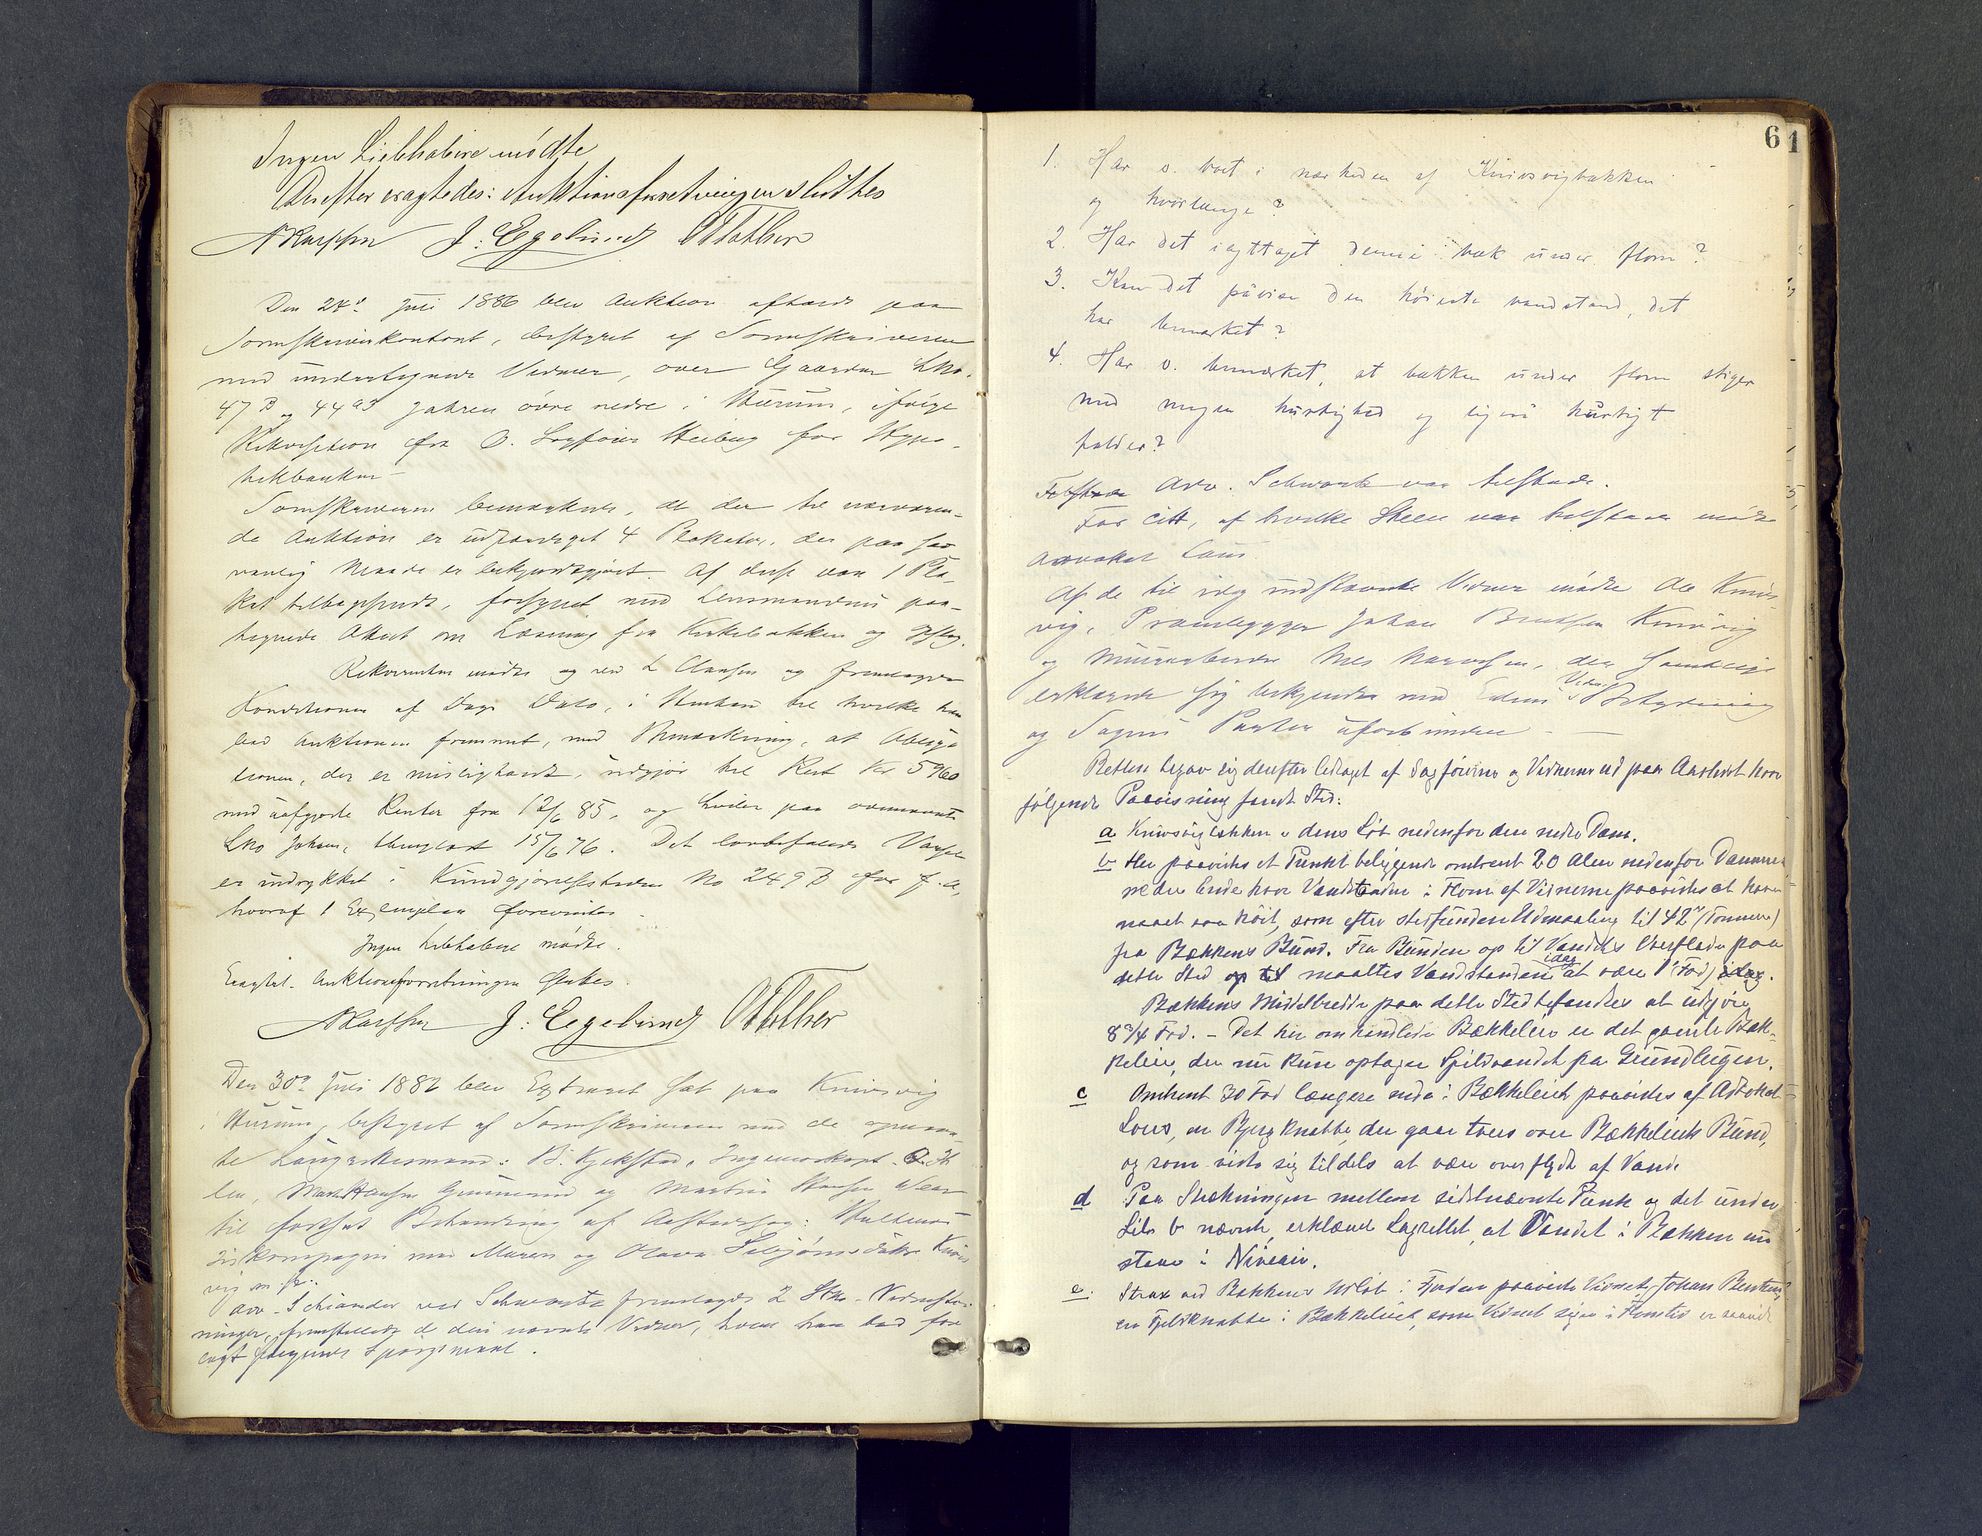 Ingen Liebhabere mødte
Derefter eragtedes: Auktionsforretningen sluttes
J. Egelund
Den 24de Juli 1886 blev Auktion afholdt paa
Sorenskriverkontoret, bestyret af Sorenskriveren
med undertegnede Vidner, over Gaarden LNo.
47 B og 44 a3 Jahren øvre nedre i Hurum, ifølge
Rekvisition fra O. Sagfører Heiberg for Hypo-
thekbanken
Sorenskriveren bemærkede, at der til nærværen-
de Auktion er udfærdiget 4 Plakater, der paa sæd-
vanlig Maade er bekjendtgjort. Af disse var 1 Pla-
kat tilbagesendt, forsynet med Lensmandens paa-
tegnede Attest om Læsning fra Kirkebakken og
Rekvirenten mødte og ved L Clausen og fremlagde
Konditioner af Dags Dato, i Henhold til hvilke han
bad Auktionen fremmet, med Bemærkning, at Obliga-
tionen, der er misligholdt, udgjør til Rest Kr 5960
med uafgjorte Renter fra 12/6 85, og hviler paa ovennævnte
LNo Jahren, thinglæst 15/6 76. Det lovbefalede Varsel
er indrykket i Kundgjørelsestidende No 249 B for f. A,
hvoraf 1 Exemplar forevistes
Ingen Liebhabere mødte.
Eragtet. Auktionsforretningen sluttes.
J. Egelund
Den 30de Juli 1882 blev Extraret sat paa Knivsvig
i Hurum, bestyret af Sorenskriveren med de opnævn-
te Laugrettesmænd: B. Kjekstad, Ingeniørkapt.
og Martin Hansen
til fortsat Behandling af Aastedssag:
kompagni mod Maren og Olava Knivs
vig m. fl.
Adv. Schiander ved Schwartz fremlagde 2 Stk.
ninger, fremstillede de deri nævnte Vidner, hvem han bad fore-
lagt følgende Spørgsmaal.
61
1. Har v. boet i nærheden af Knivsvigbækken
og hvorlænge?
2 Har det iagttaget denne bæk under flom?
3. Kan det påvise den høieste vandstand, det
har bemærket?
4. Har v. bemærket, at bækken under flom stiger
med megen hurtighed og ligeså hurtigt
falder?
Adv. Schwartz var tilstede.
For Citt, af hvilke Steen var tilstede mødte
Advokat Lous.
Af de til idag indstævnte Vidner mødte Ole Knivs-
vig, Johan Bentsen Knivsvig
og Murarbeider Nils der samtlige
erklærede sig bekjendte med Edens Betydning
og Sagens Parter uforbundne
Retten begav sig derefter ledsaget af Sagførerne og Vidnerne ud paa Aastedet hvor
følgende Paavisning fandt Sted:
a Knivsvigbækken i dens Løb nedenfor den nedre Dam.
b Her paavistes et Punkt beliggende omtrent 20 Alen nedenfor Dammens
nedre Ende hvor Vandstanden i Flom af Vidnerne paavistes at have
naaet saa høit, som efter stedfunden Udmaaling til 42" (Tommer)
fra Bækkens Bund. Fra Bunden op til Vandets Overflade paa
dette Sted op til maaltes Vandstanden idag at være 1 Fod, idag.
Bækkens Middelbredde paa dette Sted befandtes at udgjøre
8 3/4 Fod. - Det her omhandlede Bækkeleie er det gamle Bæk-
keleie, der nu kun optager Spildvandet fra Grundlugen.
c Omtrent 30 Fod længere nede i Bækkeleiet paavistes af Advokat
Lous, en Bjergknabbe, der gaar tvers over Bækkeleiets Bund,
og som viste sig tildels at være overflydt af Vand.
d Paa Strækningen mellem sidstnævnte Punkt og det under
Litr b nævnte, erklærede Lagrettet, at Vandet i Bækken nu
staar i Niveau.
e. Strax ved Bækkens Udløb i Fjorden paaviste Vidnet Johan Bentsen
en Fjeldknabbe i Bækkeleiet, som Vidnet siger i